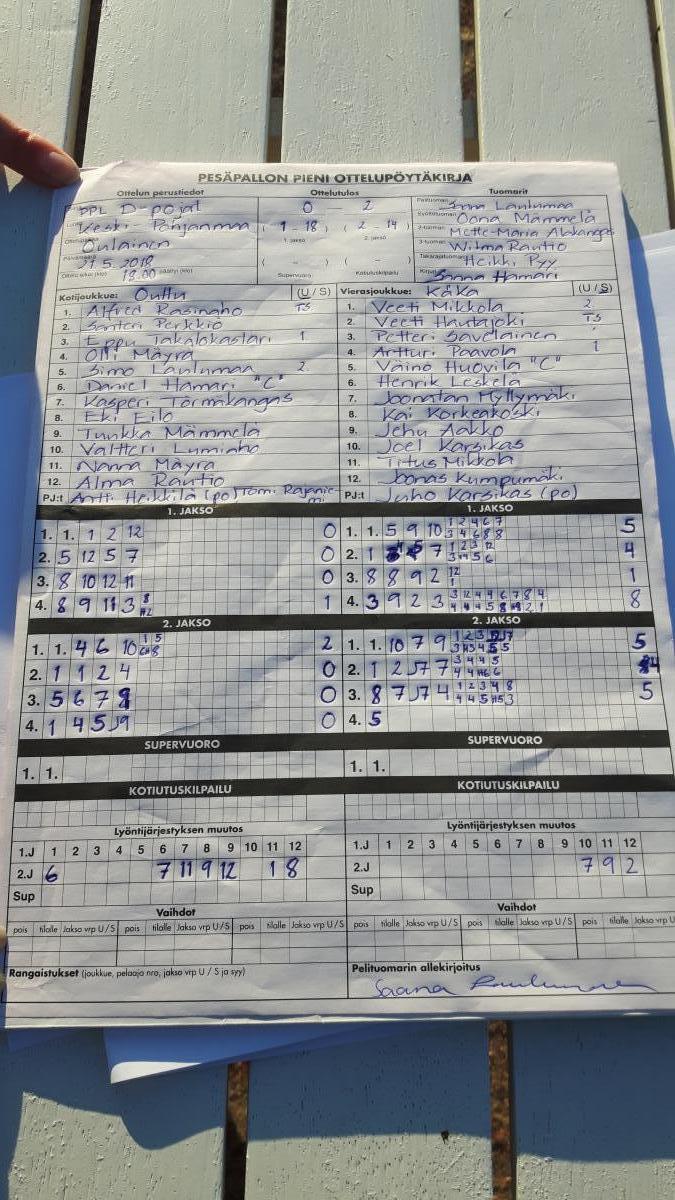 PESÄPALLON PIENI OTTELUPÖYTÄKIRJA
Ottelun perustiedot Ottelutulos Tuomarit
PPL D-pojat 0 - 2 Laulumaa
Keski-Pohjanmaa (1 - 18) (2 - 14) Oona Mämmelä
Oulainen 1. jakso 2. jakso Mette-Maria Alakangas
Wilma Rautio
21.5.2018 ( - ) ( ) Heikki Pyy
18.00 Supervuoro Kotiutuskilpailu Sanna Hamari
Kotijoukkue: Outtu (U / S) Vierasjoukkue: KäKa (U / S)
1. Alfred Rasinaho TS 1. Veeti Mikkola 2
2. Santeri Perkkiö 2. Veeti Hautajoki TS
3. Eppu Takalokastari 1 3. Petteri Savelainen
4. Olli Mäyrä 4. Artturi Paavola 1
5. Simo Laulumaa 2 5. Väinö Huovila "C"
6. Daniel Hamari "C" 6. Henrik Leskelä
7. Kasperi Törmäkangas 7. Joonatan Myllymäki
8. Eki Eilo 8. Kai Korkeakoski
9. Tuukka Mämmelä 9. Jehu Aakko
10. Valtteri Luminho 10. Joel Karsikas
11. Nanna Mäyrä 11. Titus Mikkola
12. Alma Rautio 12. Joonas Kumpumäki
PJ:t Antti Heikkilä (po) Tomi Rajaniemi PJ:t Juho Karsikas (po)
1. JAKSO 1. JAKSO
1. 1. 1 2 12 0 1. 1. 5 9 10 1 2 4 6 7 3 4 6 8 8 5
2. 5 12 5 7 0 2. 1 7 1 2 3 12 4
3. 8 10 12 11 0 3. 8 8 9 2 12 1 1
4. 8 9 11 3 8 1 4. 3 9 2 3 8
2. JAKSO 2. JAKSO
1. 1. 4 6 10 1 5 2 1. 1. 10 7 9 5
2. 1 1 2 4 0 2. 1 2 7 3 4 4 5 4
3. 5 6 7 0 3. 8 7 4 1 2 3 4 8 5
4. 1 4 5 9 0 4. 5
SUPERVUORO SUPERVUORO
1. 1. 1. 1.
KOTIUTUSKILPAILU KOTIUTUSKILPAILU
Lyöntijärjestyksen muutos Lyöntijärjestyksen muutos
1.J 1 2 3 4 5 6 7 8 9 10 11 12 1.J 1 2 3 4 5 6 7 8 9 10 11 12
2.J 6 7 11 9 12 1 8 2.J 7 9 2
Sup Sup
Vaihdot Vaihdot
pois tilalle Jakso vrp U / S pois tilalle Jakso vrp U / S pois tilalle Jakso vrp U / S pois tilalle Jakso vrp U / S
Rangaistukset (joukkue, pelaaja nro, jakso vrp U / S ja syy) Pelituomarin allekirjoitus
Saana